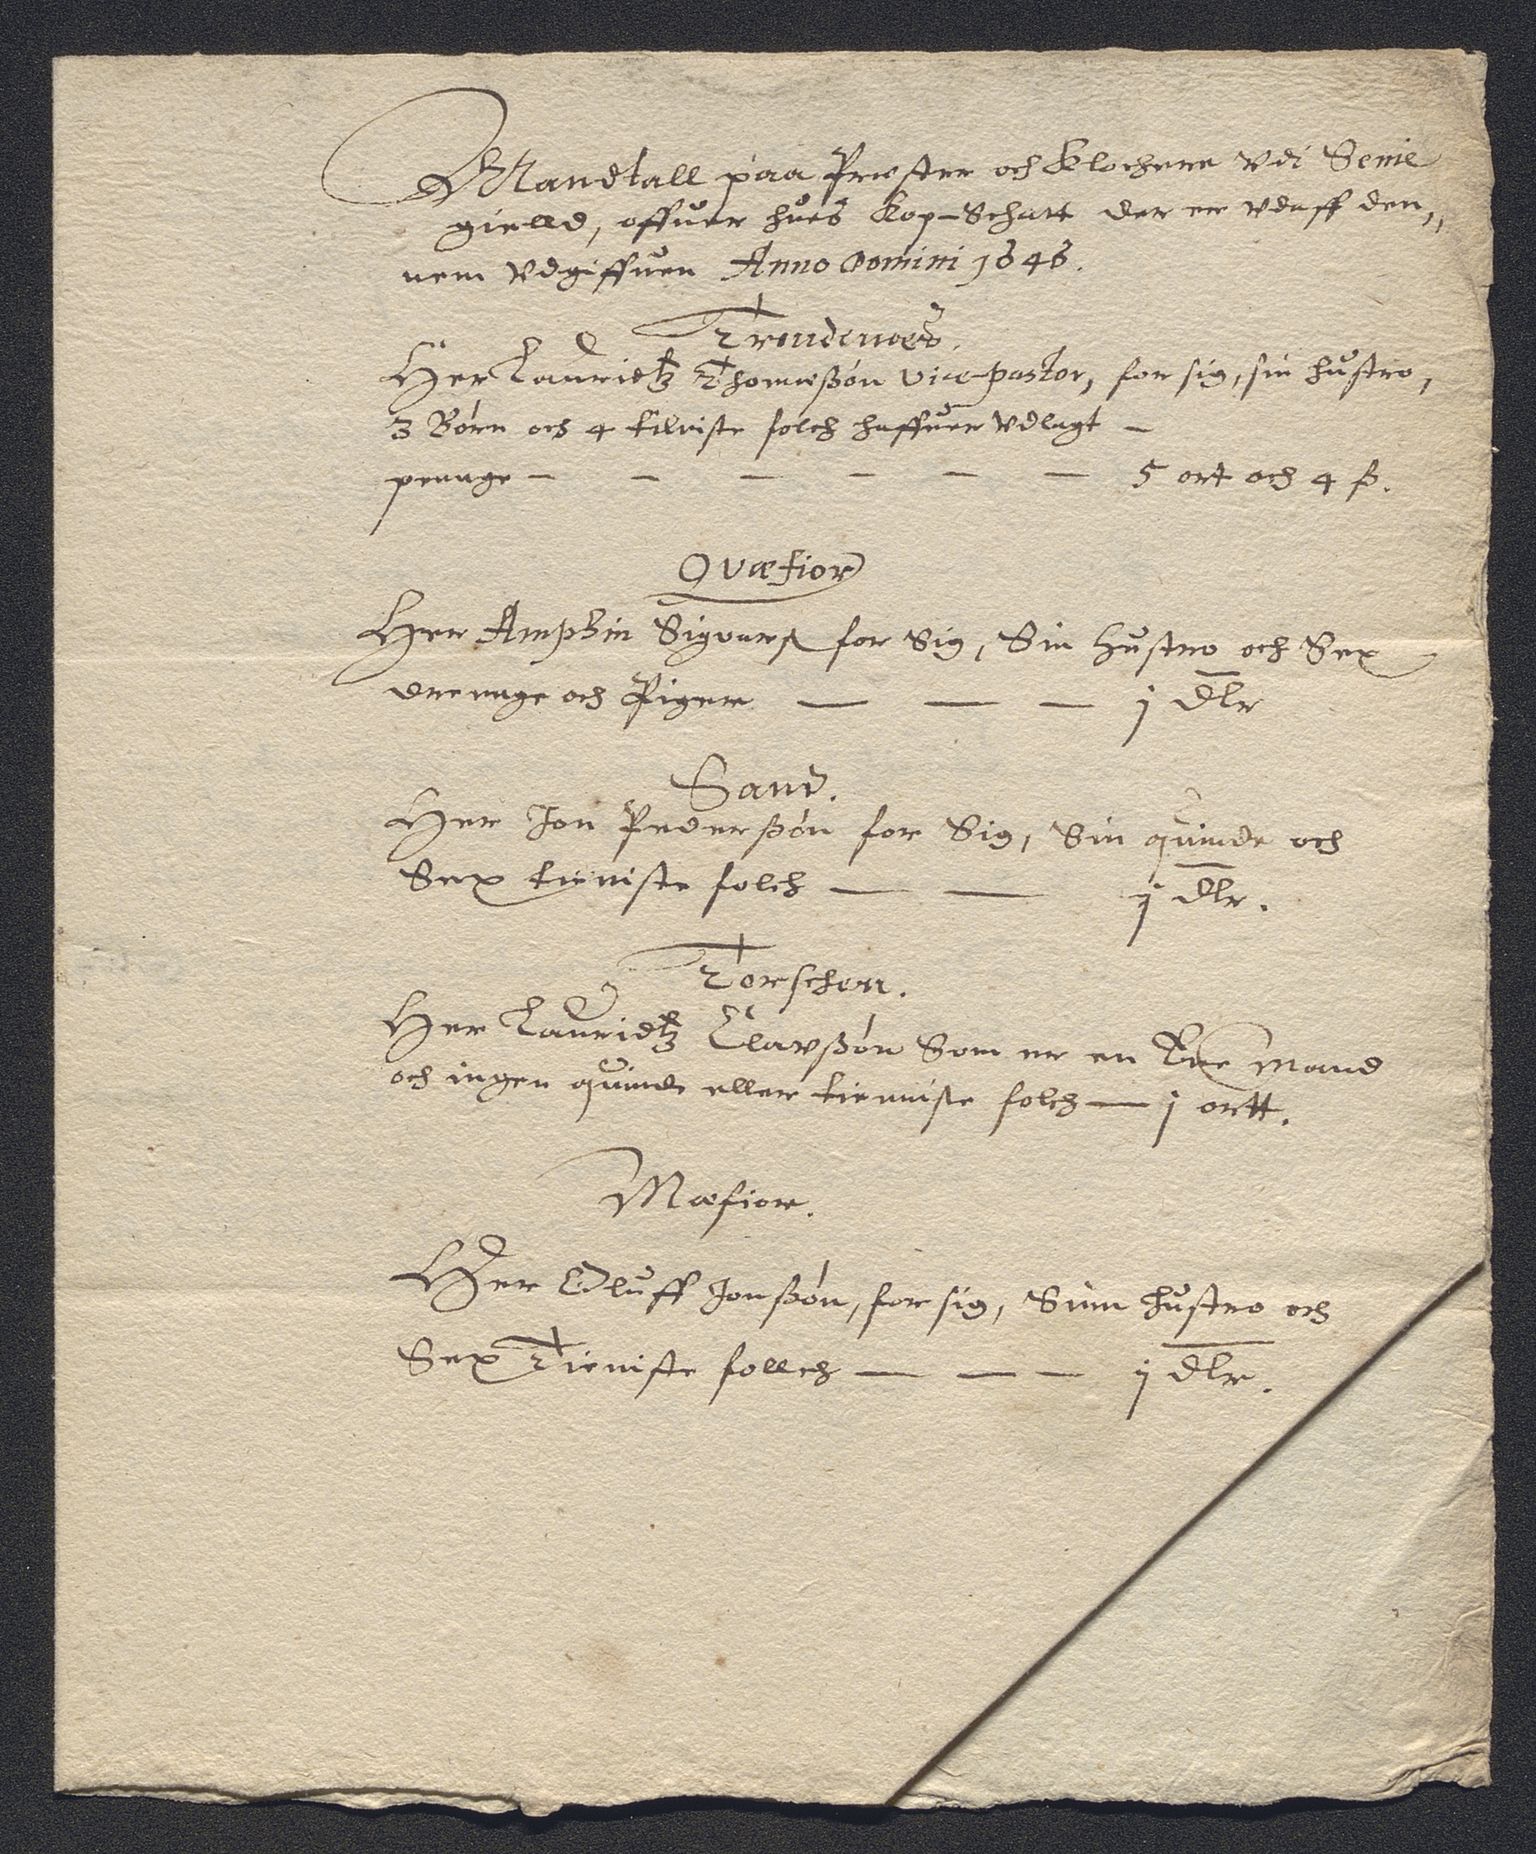 Mandtall paa Prester och Klochere Udi Senie
gielld, offuer hues Kop-Schatt der er udaff den„
nem Udgiffuen Anno Domini 1646.
Trondenæs.
Her Lauridtz Thomæsøn Vice-pastor, for sig, sin hustro,
3 Børn och 4 folch haffuer Udlagt —
penge — — — — — — 5 ort och 4 ß.
Qvæfior
Her Amphin Sigvars for Sig, Sin hustro och Sex
drennge och Piger — — — j dlr
Sand.
Her Jon Pederßøn for Sig, Sin quinde och
Sex tieniste folch — — j dlr.
Torschen.
Her Lauridtz Clavßøn Som er en Mand
och ingen quinde eller tienniste folch — j ortt.
Mæfior.
Her Oluff Jonßøn, for sig, Sinn hustro och
Sex Tieniste follch — — — j dlr.